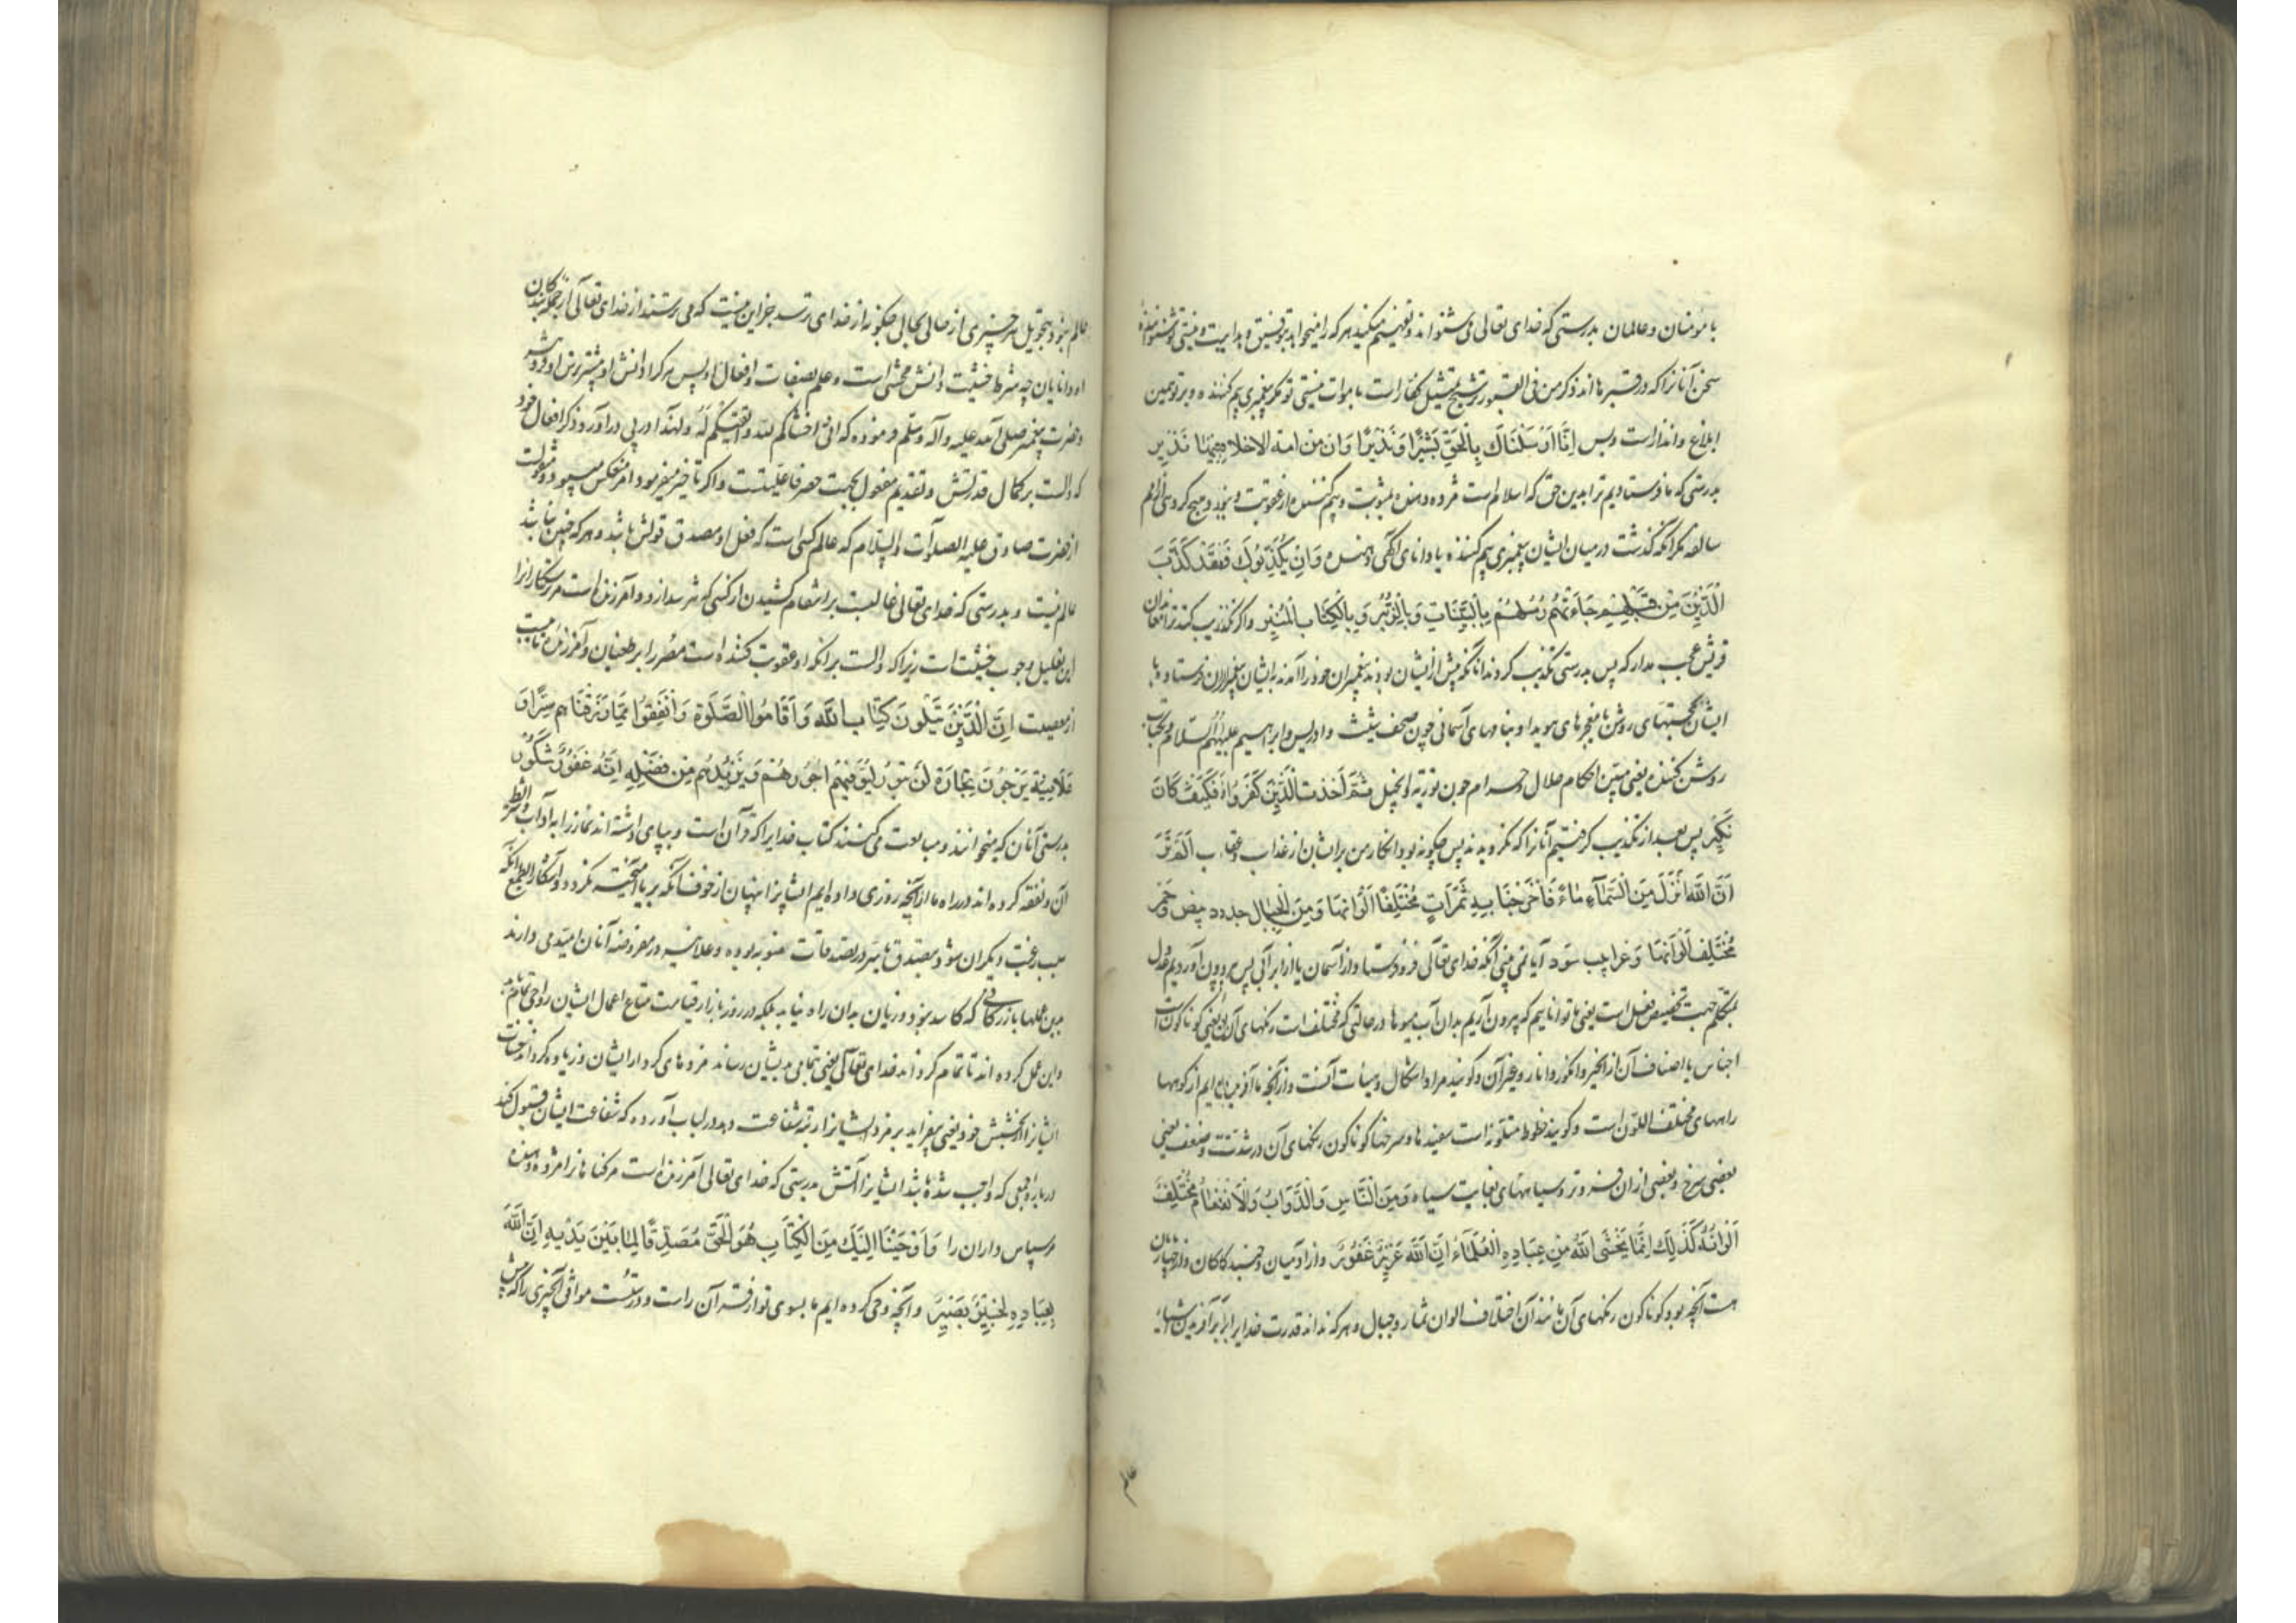 با مؤمنان و عالمان بدرستی که خدای تعالی می شنواند و تفهیم میکند هر که را میخواهد بتوفیق و هدایت و نیستی تو شنواننده
سخن آنانرا که در قبرها اند ذکر من فی القبور ترشیح تمثیل کفار است باموات نیستی تو مگر پیغمبری بیم کننده و بر تو همین
ابلاغ و انذار است و بس اِنَّا اَرْسَلْنَاكَ بِالْحَقِّ بَشِیْرًا وَنَذِیْرًا وَاِن مِن امة الاخلا فیها نَذِیر
بدرستی که ما فرستادیم ترا بدین حق که اسلام است مژده دهنده بمثوبت و بیم کننده از عقوبت و نبود هیچ گروهی از امم
سالفه مگر آنکه گذشت در میان ایشان پیغمبری بیم کننده یا دانای آگهی دهنده وَاِنْ یُكَذِّبُوكَ فَقَدْ كَذَّبَ
الَّذِیْنَ مِنْ قَبْلِهِمْ جَاءَتْهُمْ رُسُلُهُمْ بِالْبَیِّنَاتِ وَبِالزُّبُرِ وَبِالْكِتَابِ الْمُنِیْرِ و اگر تکذیب کنند ترا معاندان
قریش عجب مدار که پس بدرستی تکذیب کردند آنانکه پیش از ایشان بودند پیغمبران خود را آمدند بایشان پیغمبران فرستاده ما
ایشان بحجتهای روشن یا معجزهای هویدا و بنامهای آسمانی چون صحف شیث و ادریس و ابراهیم علیهم السلام و بکتاب
روشن کننده یعنی مبین احکام حلال و حرام چون توریة و انجیل ثُمَّ اَخَذتُ الَّذِیْنَ كَفَرُوا فَكَیْفَ كَانَ
نَكِیْرِ پس بعد از تکذیب گرفتیم آنانرا که نگرویدند پس چگونه بود انکار من بر ایشان از عذاب و عقاب اَلَمْ تَرَ
اَنَّ اللّٰهَ اَنْزَلَ مِنَ السَّمَآءِ مَاءً فَاَخْرَجْنَا بِهِ ثَمَرَاتٍ مُخْتَلِفًا اَلْوَانُهَا وَمِنَ الْجِبَالِ جدد بیض وَحُمْر
مُخْتَلِف اَلْوَانُهَا وَغرابیب سُود آیا نمی بینی آنکه خدای تعالی فرو فرستاد از آسمان یا از ابر آبی پس بیرون آوردیم عدول
بتکلم جهت تخصیص فعل است یعنی ما توانائیم که بیرون آریم بدان آب میوها در حالتی که مختلف است رنگهای آن یعنی گوناگونست
اجناس یا اصناف آن از انجیر و انگور و انار و غیر آن و گویند مراد اشکال و هیأت آنست و از آنچه ما آفریده ایم از کوهها
راههای مختلف اللون است و گویند خطوط متلونه است سفیدها و سرخها گوناگون رنگهای آن در شدت و ضعف یعنی
بعضی سرخ و بعضی از ان سرخ تر و سیاههای بغایت سیاه وَمِنَ النَّاسِ وَالدَّوَابِّ وَالْاَنْعَامِ مُخْتَلِفٌ
اَلْوَانُهُ كَذٰلِكَ اِنَّمَا یَخْشَى اللّٰهَ مِنْ عِبَادِهِ الْعُلَمَاءُ اِنَّ اللّٰهَ عَزِیْزٌ غَفُوْرٌ و از آدمیان و جنبندگان و از چهارپایان
هست آنچه بود گوناگون رنگهای آن مانند آن اختلاف الوان ثمار و جبال و هر که نداند قدرت خدایرا بر آفریدن اشیاء
عالم
عالم نبود بتحویل هر چیزی از حالی بحالی چگونه از خدای ترسد جز این نیست که می ترسند از خدای تعالی از جمله بندگان
او دانایان چه شرط خشیت دانش مخشی است و علم بصفات و افعال او پس هر کرا دانش او بیشتر ترس او زیاده تر
و حضرت پیغمبر صلی الله علیه وآله وسلم فرموده که انی اخشاکم لله و اتقیکم لَهُ و لهذا در پی در آورد ذکر افعال خود
که دالست بر کمال قدرتش و تقدیم مفعول بجهت حصر فاعلیتست و اگر تاخیر میفرمود امر منعکس میبود و منقولست
از حضرت صادق علیه الصلوات والسلام که عالم کسی است که فعل او مصدق قولش باشد و هر که چنین نباشد
عالم نیست و بدرستی که خدای تعالی غالبست بر انتقام کشیدن از کسی که نترسد ازو و آمرزنده است مر ترسکارانرا
این تعلیل وجوب خشیت است زیرا که دالست بر آنکه او عقوبت کننده است مصر را بر طغیان و آمرزنده تائبست
از معصیت اِنَّ الَّذِیْنَ یَتْلُونَ كِتَابَ اللّٰهِ وَاَقَامُوا الصَّلٰوةَ وَاَنْفَقُوا مِمَّا رَزَقْنَاهم سِرًّا وَ
عَلَانِیَةً یَرْجُوْنَ تِجَارَةً لَنْ تَبُوْرَ لِیُوَفِّیَهُمْ اُجُوْرَهُمْ وَیَزِیْدَهُم مِنْ فَضْلِهِ اِنَّهُ غَفُوْرٌ شَكُوْرٌ
بدرستی آنان که میخوانند و متابعت می کنند کتاب خدایرا که قرآن است و بپای داشته اند نماز را به آداب و شرائط
آن و نفقه کرده اند در راه ما از آنچه روزی داده ایم ایشانرا پنهان از خوف آنکه بریا آمیخته نگردد و آشکارا بطمع آنکه
سبب رغبت دیگران شود بتصدق یا سرّ در تصدقات مندوبه بوده و علانیه در مفروضه آنان امید می دارند
بدین عملها بازرگانی که کاسد نبود و زیان بدان راه نیابد بلکه در روز بازار قیامت متاع اعمال ایشان رواجی تمام
و این عمل کرده اند تا تمام گرداند خدای تعالی یعنی بتمامی بدیشان رساند مزدهای کردار ایشان و زیاده گرداند حسنات
ایشانرا از بخشش خود یعنی بیفزاید بر مزد ایشانرا رتبه شفاعت و در لباب آورده که شفاعت ایشان قبول کند
درباره جمعی که واجب شده باشد ایشانرا آتش بدرستی که خدای تعالی آمرزنده است مر گناهانرا مزد دهنده
مر سپاس داران را وَاَوْحَیْنَا اِلَیْكَ مِنَ الْكِتَابِ هُوَ الْحَقُّ مُصَدِّقًا لِمَا بَیْنَ یَدَیْهِ اِنَّ اللّٰهَ
بِعِبَادِهِ لَخَبِیْرٌ بَصِیْرٌ و آنچه وحی کرده ایم ما بسوی تو از قرآن آن راست و درست موافق آنچیزی را که پیش